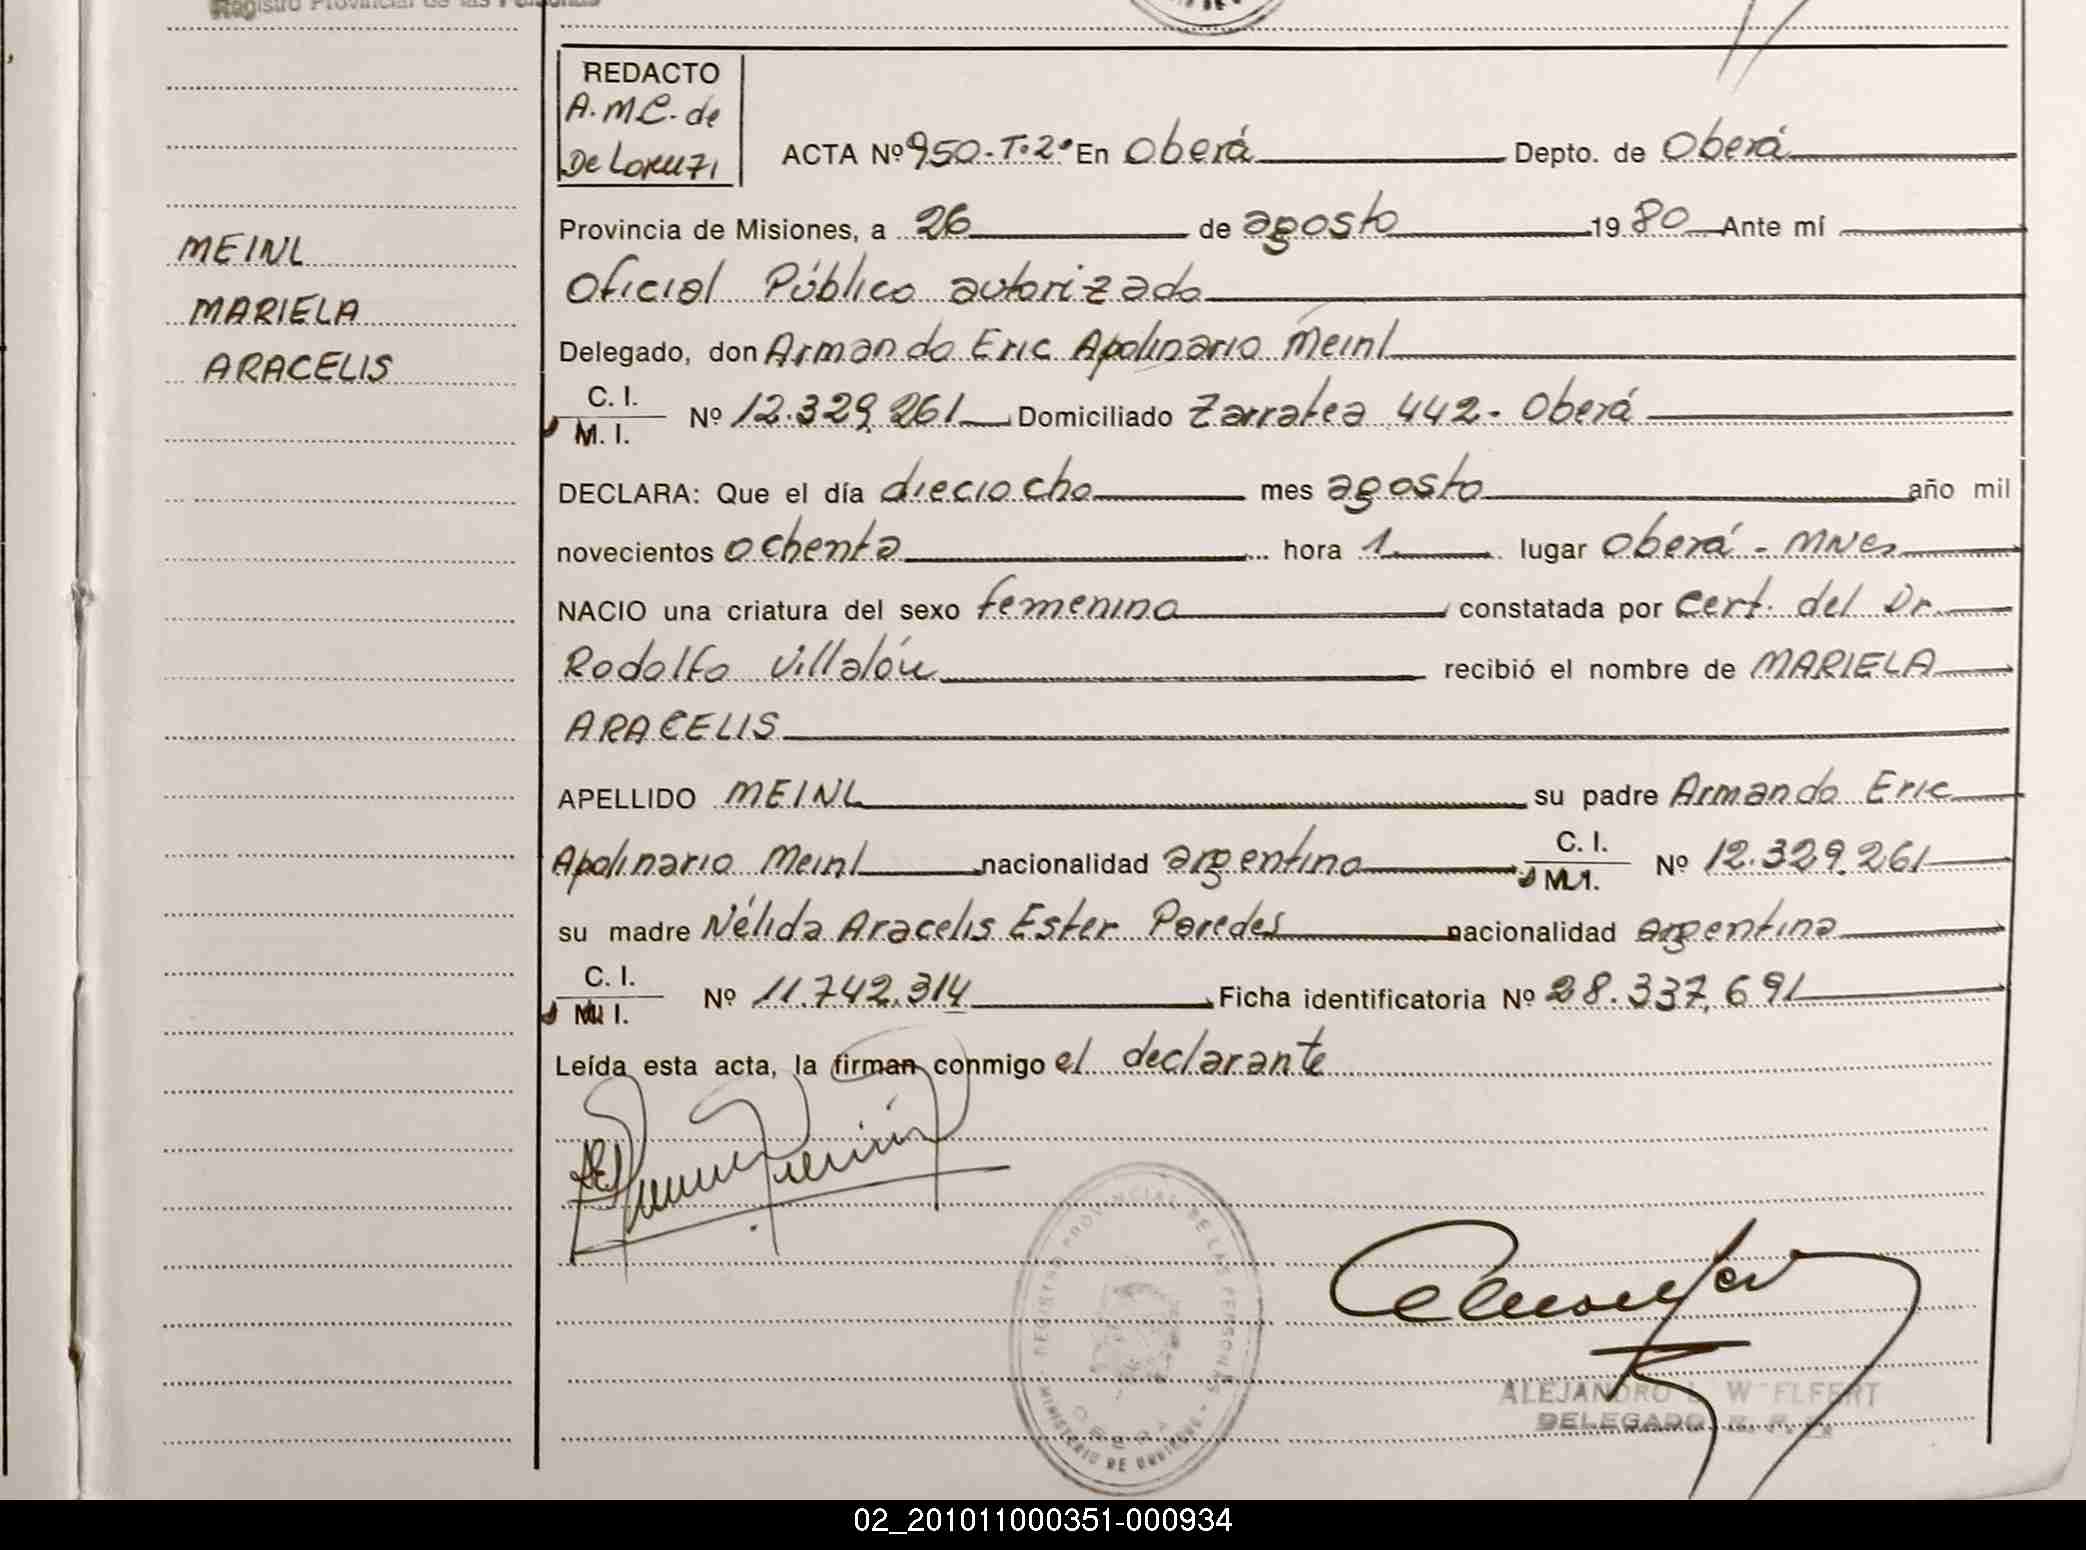 Registro Provincial de las Personas
REDACTO
A.M.C. de
De Loruzi
ACTA Nº 950-T.2º En Oberá Depto. de Oberá
Provincia de Misiones, a 26 de agosto 1980 Ante mí
Oficial Público autorizado
Delegado, don Armando Eric Apolinario Meinl
C. I.
M. I.
Nº 12.329.261 Domiciliado Zarratea 442- Oberá
DECLARA: Que el día dieciocho mes agosto año mil
novecientos ochenta hora 1 lugar Oberá - Mnes
NACIO una criatura del sexo femenino constatada por Cert. del Dr.
Rodolfo Villalón recibió el nombre de MARIELA
ARACELIS
APELLIDO MEINL su padre Armando Eric
Apolinario Meinl nacionalidad argentino C. I.
M. I.
Nº 12.329.261
su madre Nélida Aracelis Ester Paredes nacionalidad argentina
C. I.
M. I.
Nº 11.742.314 Ficha identificatoria Nº 28.337.691
Leída esta acta, la firman conmigo el declarante
MEINL
MARIELA
ARACELIS
REGISTRO PROVINCIAL DE LAS PERSONAS
MINISTERIO DE GOBIERNO
OBERA
ALEJANDRO
DELEGADO
02_201011000351-000934